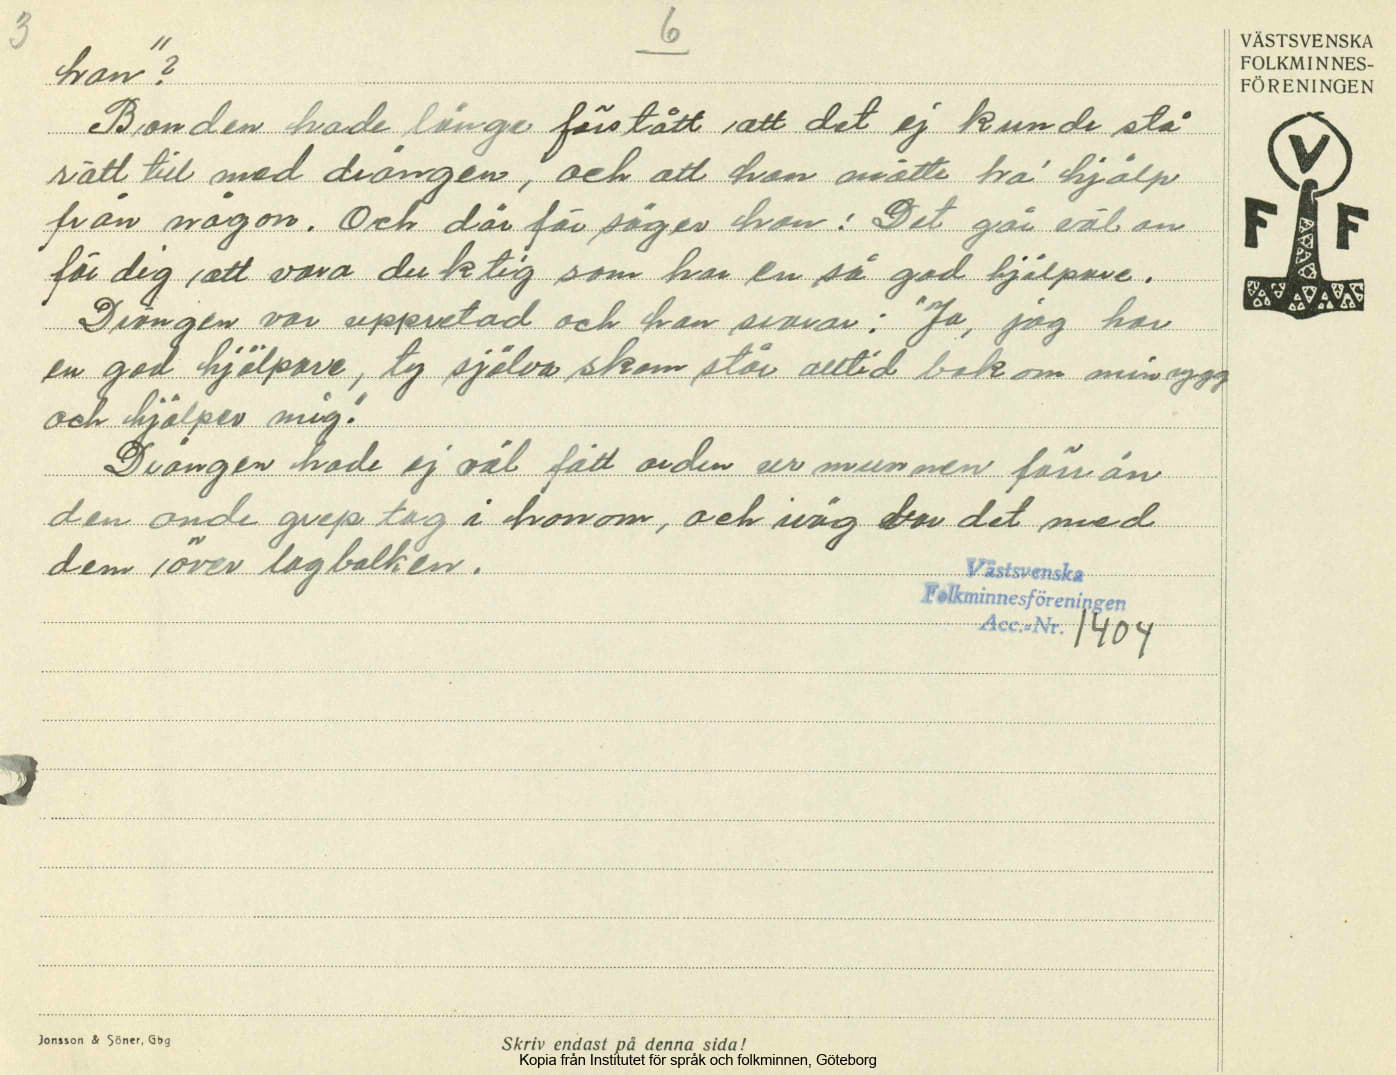 3
6
han"?
Bonden hade länge förstått att det ej kunde stå
rätt till med drängen, och att han måtte ha hjälp
från någon. Och där för säger han: Det går väl an
för dig att vara duktig som har en så god hjälpare.
Drängen var uppretad och han svarar: "Ja, jag har
en god hjälpare, ty själva skam står alltid bakom min rygg
och hjälper mig."
Drängen hade ej väl fått orden ur munnen förr än
den onde grep tag i honom, och iväg bar det med
dem över tagbalken.
VÄSTSVENSKA
FOLKMINNES-
FÖRENINGEN
V
F F
Västsvenska
Folkminnesföreningen
Acc.-Nr. 1404
Jonsson & Söner, Gbg
Skriv endast på denna sida!
Kopia från Institutet för språk och folkminnen, Göteborg